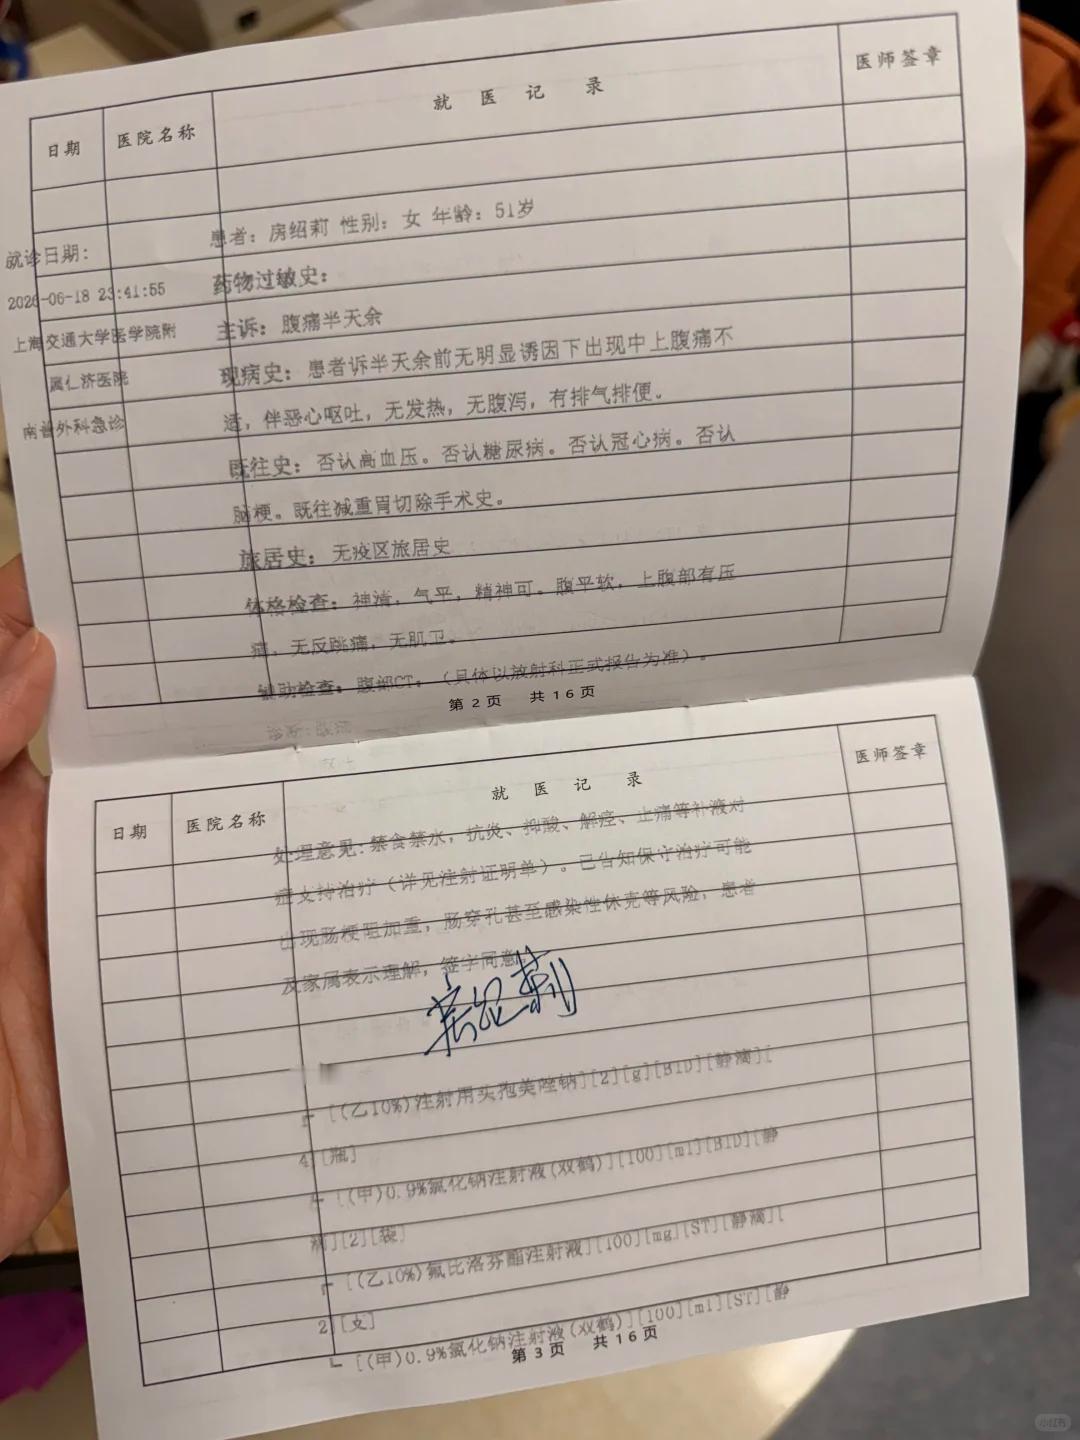 日期 医院名称 就医记录 医师签章
患者：房绍莉 性别：女 年龄：51岁
就诊日期：
药物过敏史：
2026-06-18 23:41:55
主诉：腹痛半天余
上海交通大学医学院附
现病史：患者诉半天余前无明显诱因下出现中上腹痛不
属仁济医院
适，伴恶心呕吐，无发热，无腹泻，有排气排便。
南普外科急诊
既往史：否认高血压。否认糖尿病。否认冠心病。否认
脑梗。既往减重胃切除手术史。
旅居史：无疫区旅居史
体格检查：神清，气平，精神可。腹平软，上腹部有压
痛，无反跳痛，无肌卫。
辅助检查：腹部CT：（具体以放射科正式报告为准）。
第2页 共16页
诊断：
日期 医院名称 就医记录 医师签章
处理意见：禁食禁水，抗炎、抑酸、解痉、止痛等补液对
症支持治疗（详见注射证明单）。已告知保守治疗可能
出现肠梗阻加重，肠穿孔甚至感染性休克等风险，患者
及家属表示理解，签字同意。
房绍莉
┌ [(乙10%)注射用头孢美唑钠][2][g][BID][静滴][
4][瓶]
├ [(甲)0.9%氯化钠注射液(双鹤)][100][ml][BID][静
滴][2][袋]
┌ [(乙10%)氟比洛芬酯注射液][100][mg][ST][静滴][
2][支]
└ [(甲)0.9%氯化钠注射液(双鹤)][100][ml][ST][静
第3页 共16页
小红书